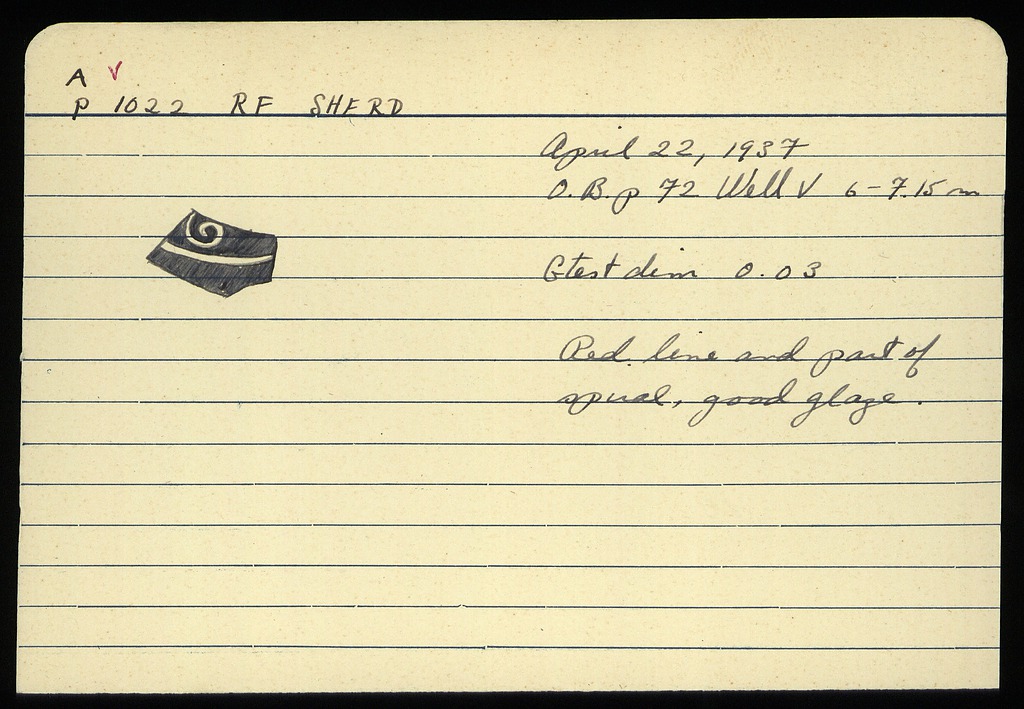 A V
P 1022 RF SHERD
April 22, 1937
O.B. p 72 Well V 6-7.15 m
Gtest dim 0.03
Red line and part of
spiral, good glaze.